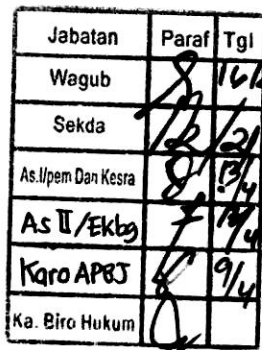 Jabatan Paraf Tgl
Wagub 16/
Sekda 2/
As.I/pem Dan Kesra 13/4
As II/Ekbg 13/4
Karo APBJ 9/4
Ka. Biro Hukum